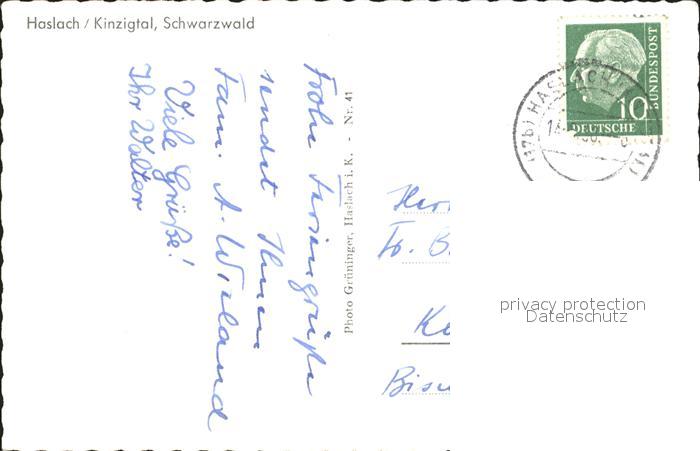 Haslach / Kinzigtal, Schwarzwald
Frohe Feriengrüße
sendet Ihnen
Fam. A. Wieland
Viele Grüße!
Ihr Walter
Photo Grüninger, Haslach i. K. - Nr. 41
(17b) HASLACH
10
DEUTSCHE
BUNDESPOST
Fr. B
Ke
privacy protection
Datenschutz